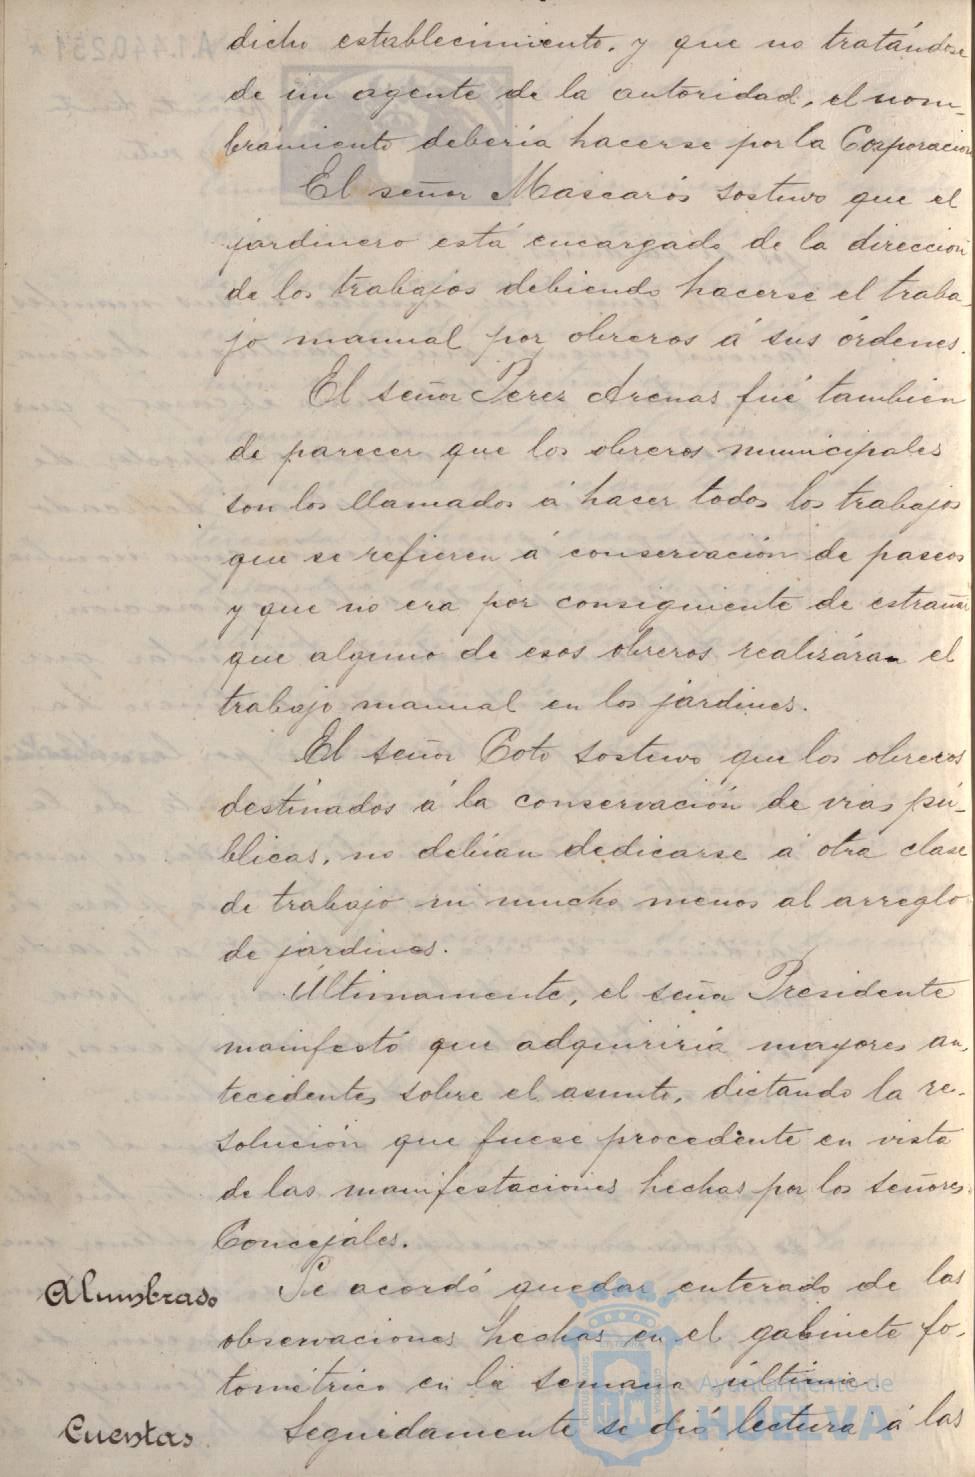 dicho establecimiento, y que no tratándose
de un agente de la autoridad, el nom-
bramiento debería hacerse por la Corporacion
El señor Mascarós sostuvo que el
jardinero está encargado de la direccion
de los trabajos debiendo hacerse el traba-
jo manual por obreros á sus órdenes.
El señor Perez Arenas fué tambien
de parecer que los obreros municipales
son los llamados á hacer todos los trabajos
que se refieren á conservación de paseos
y que no era por consiguiente de estrañar
que alguno de esos obreros realizáran el
trabajo manual en los jardines.
El señor Coto sostuvo que los obreros
destinados á la conservación de vias pú-
blicas, no debían dedicarse á otra clase
de trabajo ni mucho menos al arreglo
de jardines.
Últimamente, el señor Presidente
manifestó que adquiriría mayores an-
tecedentes sobre el asunto, dictando la re-
solución que fuese procedente en vista
de las manifestaciones hechas por los señores
Concejales.
Alumbrado Se acordó quedar enterado de las
observaciones hechas en el gabinete fo-
tométrico en la semana última.
Ayuntamiento de
HUELVA
Cuentas Seguidamente se dió lectura á las